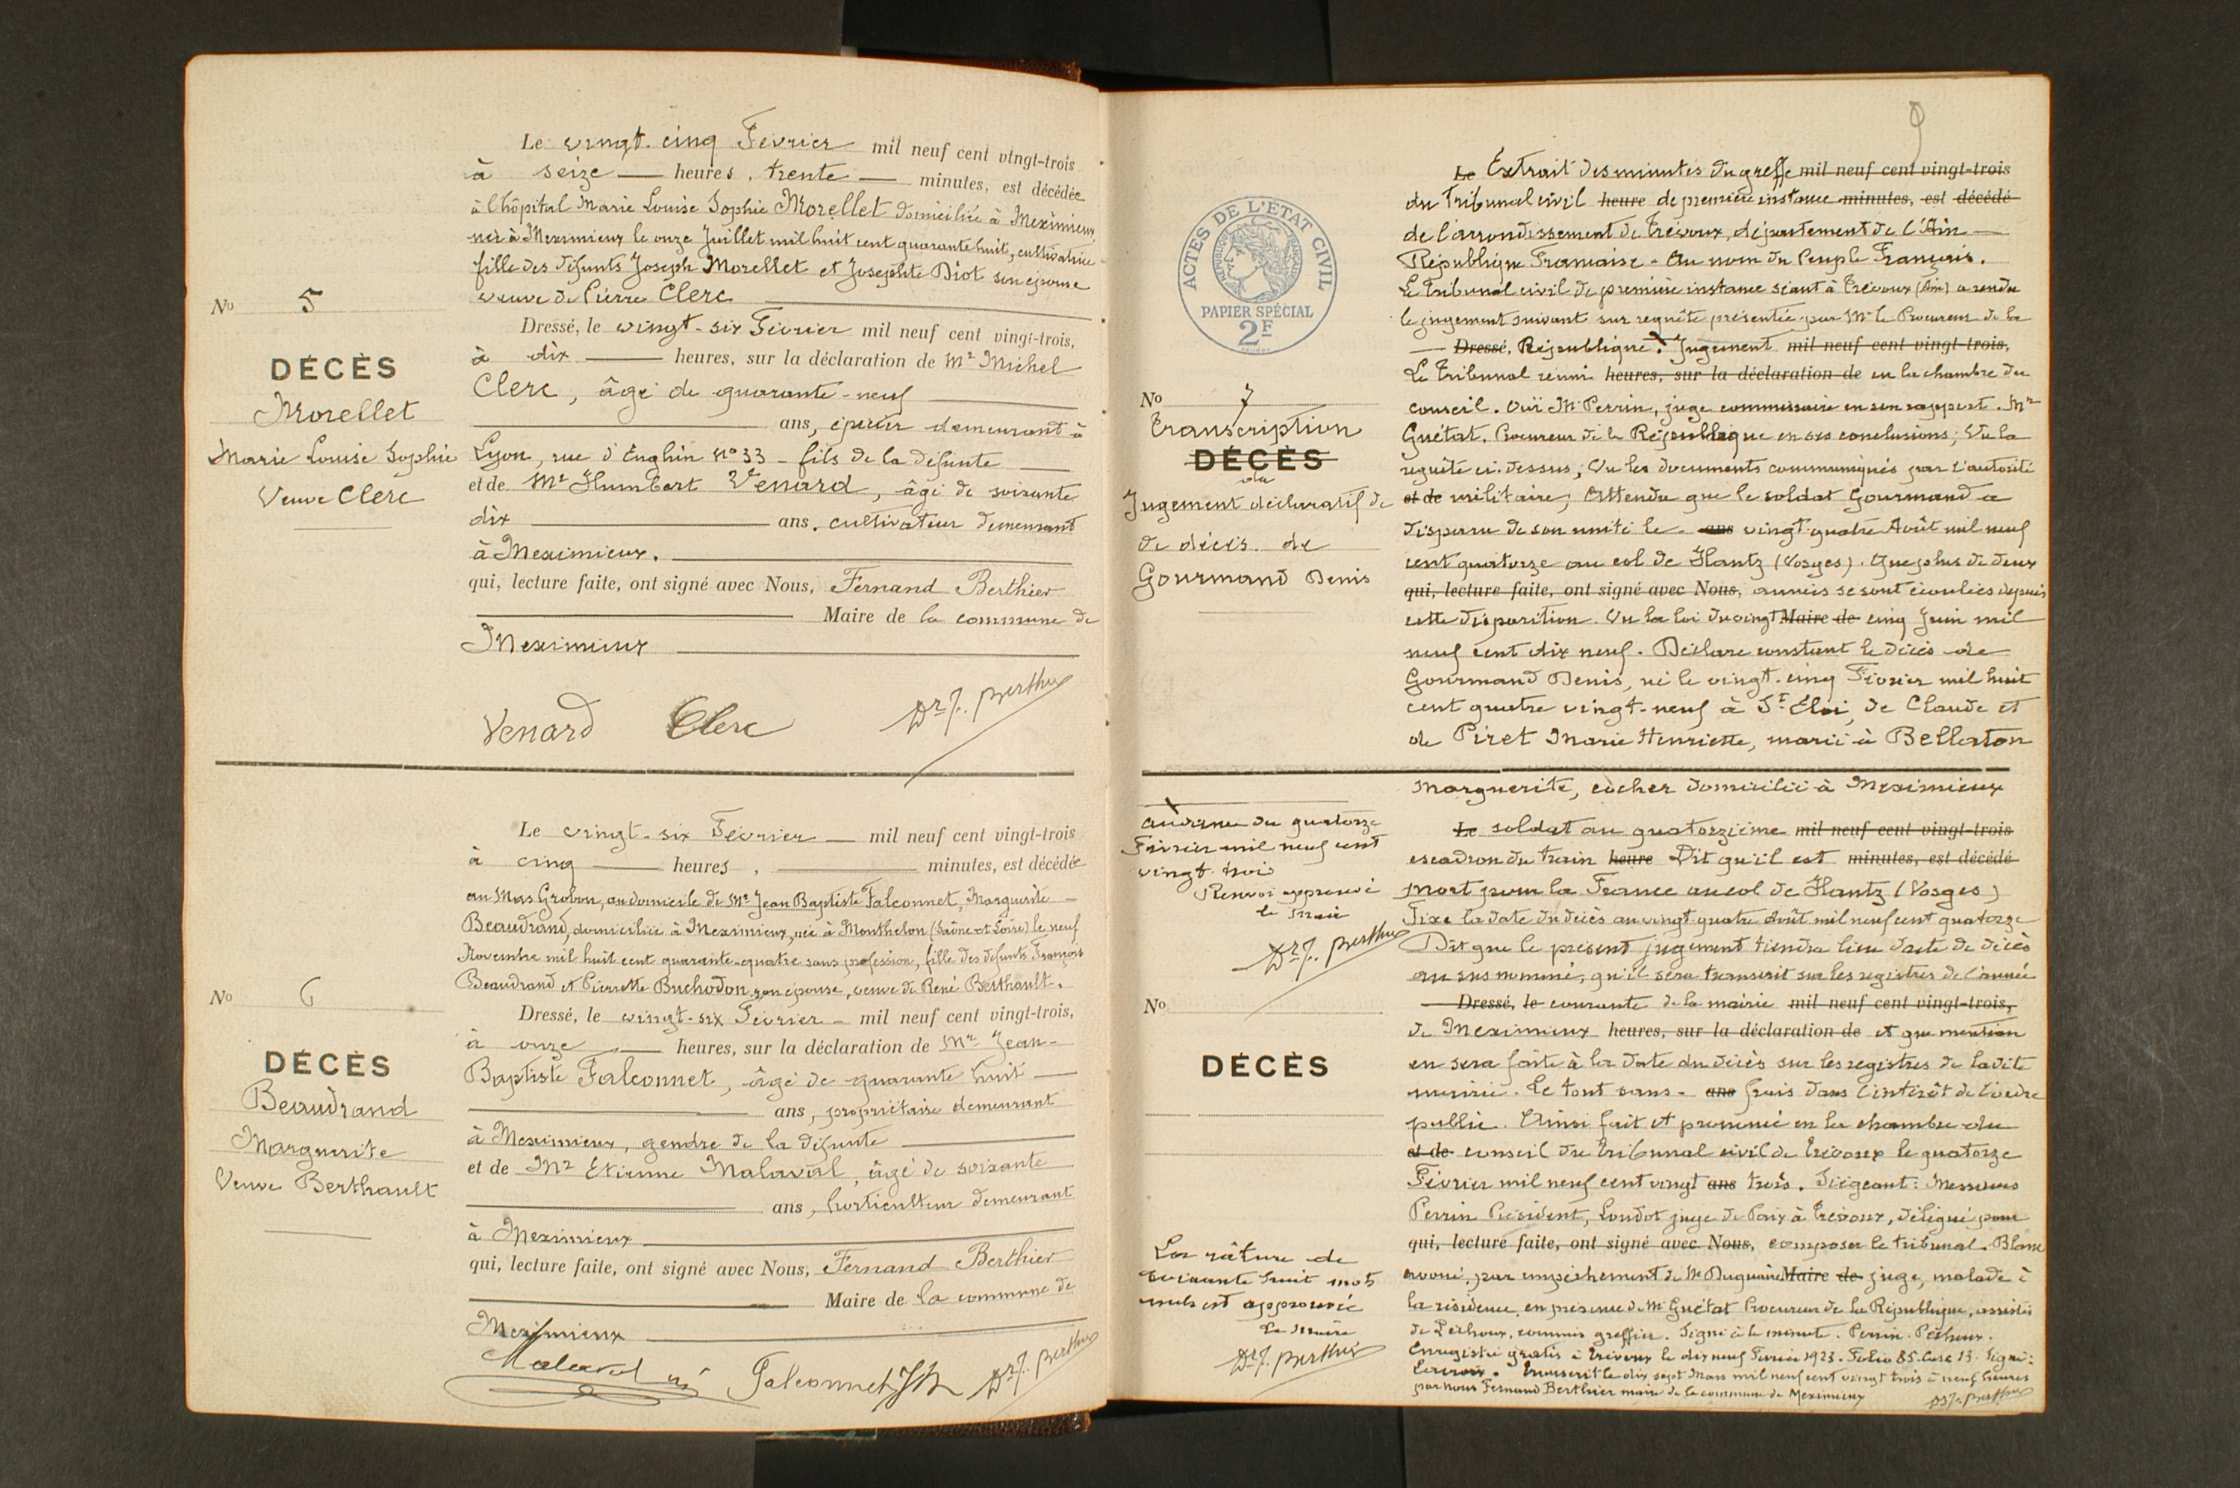 Le vingt-cinq Février mil neuf cent vingt-trois
à seize heures, trente minutes, est décédée
à l'hôpital Marie Louise Sophie Morellet domiciliée à Meximieux,
née à Meximieux le onze Juillet mil huit cent quarante huit, cultivatrice
fille des défunts Joseph Morellet et Josephte Diot son épouse
veuve de Pierre Clerc
No 5
Dressé, le vingt-six Février mil neuf cent vingt-trois,
à dix heures, sur la déclaration de Mr Michel
DÉCÈS
Clerc, âgé de quarante-neuf
Morellet
ans, épicier demeurant à
Marie Louise Sophie
Lyon, rue d'Enghin No 33 - fils de la défunte
Veuve Clerc
et de Mr Humbert Venard, âgé de soixante
dix ans, cultivateur demeurant
à Meximieux.
qui, lecture faite, ont signé avec Nous, Fernand Berthier
Maire de la commune de
Meximieux
Venard Clerc Dr F. Berthier
Le vingt-six Février mil neuf cent vingt-trois
à cinq heures, minutes, est décédée
au Mas Grobon, au domicile de Mr Jean Baptiste Falconnet, Marguerite
Beaudrand, domiciliée à Meximieux, née à Monthelon (Saône et Loire) le neuf
Novembre mil huit cent quarante-quatre sans profession, fille des défunts François
Beaudrand et Pierrette Buchodon, son épouse, veuve de René Berthault.
No 6
Dressé, le vingt-six Février mil neuf cent vingt-trois,
à onze heures, sur la déclaration de Mr Jean-
DÉCÈS
Baptiste Falconnet, âgé de quarante huit
Beaudrand
ans, propriétaire demeurant
Marguerite
à Meximieux, gendre de la défunte
Veuve Berthault
et de Mr Etienne Malaval, âgé de soixante
ans, horticulteur demeurant
à Meximieux
qui, lecture faite, ont signé avec Nous, Fernand Berthier
Maire de la commune de
Meximieux
Malaval Falconnet JB Dr F. Berthier
9
ACTES DE L'ÉTAT CIVIL
PAPIER SPÉCIAL
2F
Le Extrait des minutes du greffe mil neuf cent vingt-trois
du Tribunal civil heure de première instance minutes, est décédé
de l'arrondissement de Trévoux, département de l'Ain
République Française - Au nom du Peuple Français.
Le Tribunal civil de première instance séant à Trévoux (Ain) a rendu
le jugement suivant sur requête présentée par Mr le Procureur de la
Dressé, République. Jugement mil neuf cent vingt-trois,
Le Tribunal réuni heures, sur la déclaration de en la chambre du
No 7
conseil. Ouï Mr Perrin, juge commissaire en son rapport. Mr
Transcription
Guétat, Procureur de la République en ses conclusions; Vu la
DÉCÈS
requête ci-dessus, Vu les documents communiqués par l'autorité
du
Jugement déclaratif de
et de militaire; Attendu que le soldat Gourmand a
disparu de son unité le ans vingt-quatre Août mil neuf
de décès de
cent quatorze au col de Hantz (Vosges). Que plus de deux
Gourmand Denis
qui, lecture faite, ont signé avec Nous, années se sont écoulées depuis
cette disparition. Vu la loi du vingt Maire de cinq Juin mil
neuf cent dix neuf. Déclare constant le décès de
Gourmand Denis, né le vingt-cinq Février mil huit
cent quatre vingt-neuf à St Eloi, de Claude et
de Piret Marie Henriette, marié à Bellaton
Marguerite, cocher domicilié à Meximieux
du quatorze
Février mil neuf cent
vingt-trois
Renvoi approuvé
le Maire
Dr F. Berthier
Le soldat au quatorzième mil neuf cent vingt-trois
escadron du train heure Dit qu'il est minutes, est décédé
mort pour la France au col de Hantz (Vosges)
Fixe la date du décès au vingt quatre Août mil neuf cent quatorze
Dit que le présent jugement tiendra lieu d'acte de décès
au sus nommé, qu'il sera transcrit sur les registres de l'année
No
Dressé, le courante de la mairie mil neuf cent vingt-trois,
de Meximieux heures, sur la déclaration de et que mention
DÉCÈS
en sera faite à la date du décès sur les registres de la dite
mairie. Le tout sans ans frais dans l'intérêt de l'ordre
public. Ainsi fait et prononcé en la chambre du
et de conseil du Tribunal civil de Trévoux le quatorze
Février mil neuf cent vingt ans trois. Siégeant: Messieurs
Perrin Président, Loudot juge de Paix à Trévoux, délégué pour
qui, lecture faite, ont signé avec Nous, composer le tribunal. Blanc
avoué, par empêchement de Mr Maire de juge, malade à
la résidence, en présence de Mr Guétat Procureur de la République, assistés
de Péchoux, commis greffier. Signé à la minute. Perrin. Péchoux.
Enregistré gratis à Trévoux le dix neuf Février 1923. Folio 85. Case 13. Signé:
Transcrit le dix sept Mars mil neuf cent vingt trois à neuf heures
par nous Fernand Berthier maire de la commune de Meximieux Dr F. Berthier
La râture de
soixante huit mots
nuls est approuvée
Le Maire
Dr F. Berthier